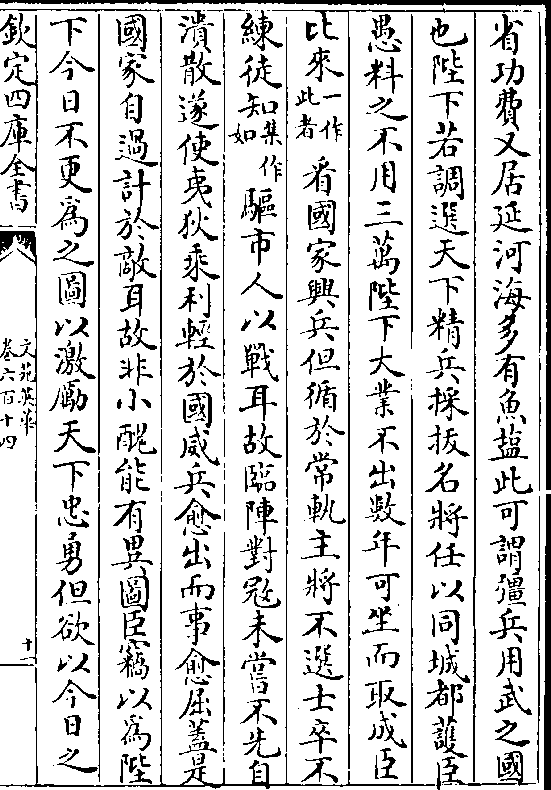 省功費又居延河海多有魚塩此可謂彊兵用武之國
也陛下若調選天下精兵採拔名將任以同城都護臣
愚料之不用三萬陛下大業不出數年可坐而取成臣
比來一作此者看國家興兵但循於常軌主將不選士卒不
練徒知集作如驅市人以戰耳故臨陣對冦未嘗不先自
潰散遂使夷狄乗利輕於國威兵愈出而事愈屈蓋是
國家自過計於敵耳故非小醜能有異圖臣竊以為陛
下今日不更為之圖以激勵天下忠勇但欲以今日之
欽定四庫全書
文苑英華
卷六百十四
十一